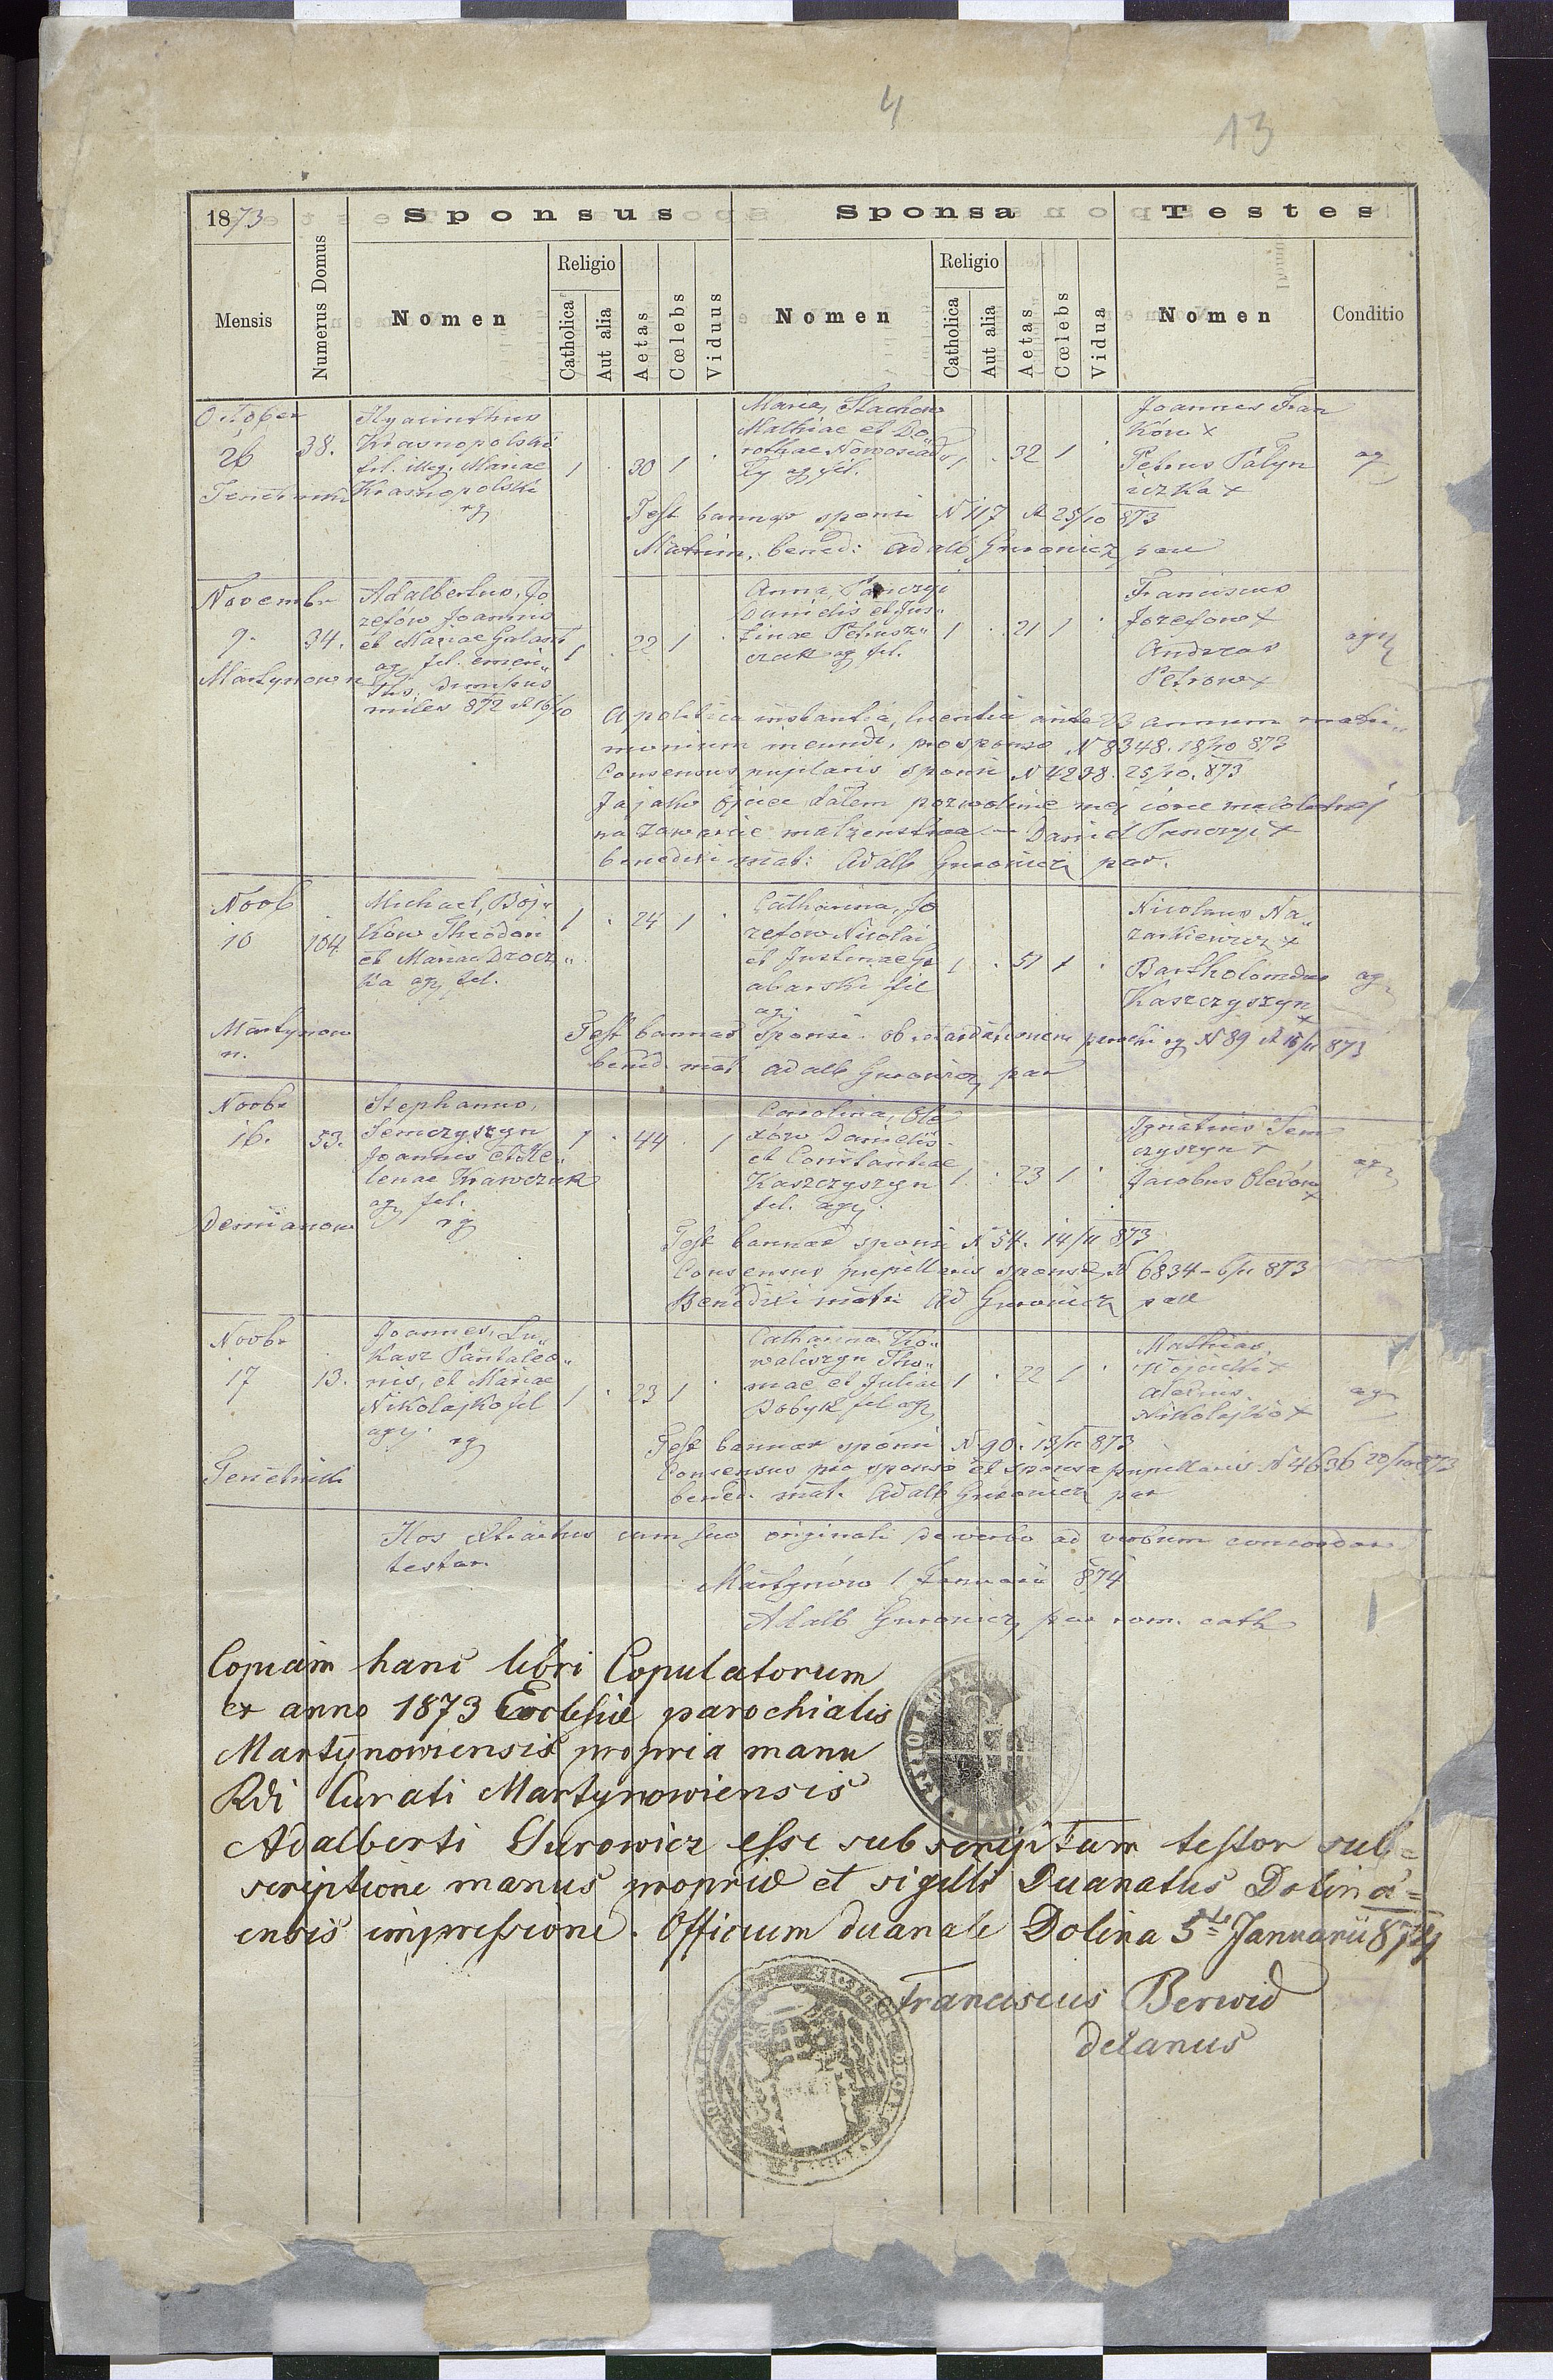 4
13
1873
Sponsus
Sponsa
Testes
Mensis
Numerus Domus
Nomen
Religio
Catholica
Aut alia
Aetas
Cœlebs
Viduus
Nomen
Religio
Catholica
Aut alia
Aetas
Cœlebs
Vidua
Nomen
Conditio
October
26
38.
Hyacinthus
Krasnopolski
fil. illeg. Mariae
Krasnopolski
rg
1 . 30 1 .
Maria, Stachow
Mathiae et Do
rothae Nowosiad
ky ag fil.
1 . 32 1 .
Joannes Fran
ków +
Petrus Palyn
iczka +
ag
Test bannor sponsi N 117 d 25/10 873
Matrim. bened: Adalb Gurowicz par
Novembr
9.
Martynow n
34.
Adalbertus, Jo
zefów Joannis
et Mariae Galant
ag fil. emeri„
tus, dimissus
miles 872 d 16/10
1 . 22 1 .
Anna, Panczyj
Danielis et Jus„
tinae Petrusz„
czak ag fil.
1 . 21 1 .
Franciscus
Jozefow +
Andreas
Petrow +
agr
A politica instantia, licentia ante B annum matri„
monium ineundi, pro sponso N 8348. 18/10 873
Consensus pupilaris sponsi N 4238. 25/10. 873
Ja jako Ojciec dałem pozwolenie mej córce małoletniej
na zawarcie małzenstwa — Daniel Panczyj +
benedixi mat: Adalb Gurowicz par.
Novb
10
Martynow
n.
104
Michael, Boj„
ków Theodori
et Mariae Drocz„
ka ag. fil.
1 . 24 1 .
Catharina, Jo
zefow Nicolai
et Justinae Ga
abarski fil
ag.
1 . 51 1 .
Nicolaus Na„
zarkiewicz +
Bartholomaus
Kaszczyszyn
+
ag
Test bannor sponsi N 89 d 15/11 873
bened. mat Adalb Gurowicz par
Novbr
16.
Demianow
53.
Stephanus,
Semczyszyn
Joannis et He„
lenae Krawczuk
ag. fil.
rg
1 . 44 . 1
Carolina, Ole
xów Danielis
et Constantiae
Kaszczyszyn
fil. agr.
1 . 23 1 .
Ignatius Sem
czyszyn +
Jacobus Olexów
+
agr
Test bannor sponsi N 54. 14/11 873
Consensus pupillaris sponsæ N 6834 - 6/11 873
Benedixi matr. Ad Gurowicz par
Novbr
17
Tenetniki
13.
Joannes, Lu„
kasz Pantaleo„
nis, et Mariae
Nikolajko fil
agr. rg
1 . 23 1 .
Catharina Ko„
waliszyn Tho„
mae et Juliae
Bobyk fil ag
1 . 22 1 .
Mathias,
Alexius.
Nikolajko +
ag
Test bannor sponsi N 90. 13/11 873
Consensus pro sponso et sponsa pupillaris N 4636 20/10 873
bened. mat. Adalb Gurowicz par
Hos extractus cum suo originali de verbo ad verbum concordare
testor.
Martynów 1 Januarii 874
Adalb Gurowicz par rom. cath
Copiam hanc libri Copulatorum
ex anno 1873 Ecclesiæ parochialis
Martynowiensis propria manu
Rdi Curati Martynowiensis
Adalberti Gurowicz esse subscriptam testor sub=
scriptione manus propriæ et sigilli Decanatus Dolina=
ensis impressione. Officium decanale Dolina 5ta Januarii 874
Franciscus Berwid
decanus